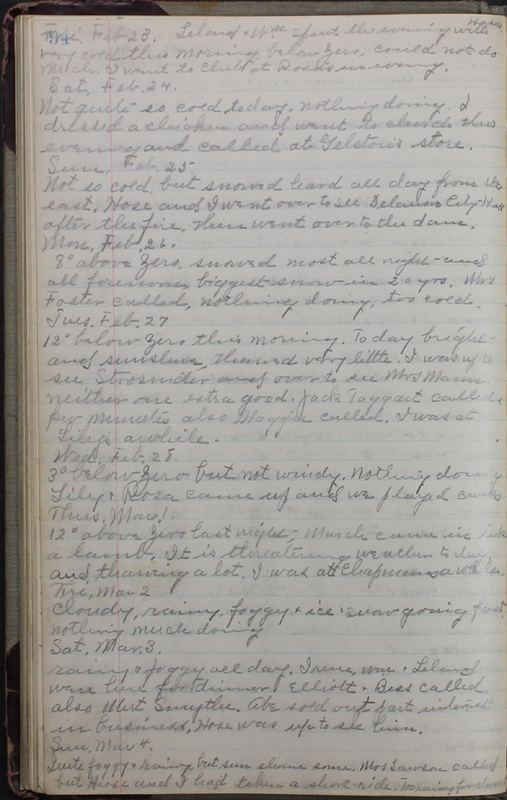 Hose.
194
Fri. Feb 23. Leland & Wm spent the evening with
very cold this morning below zero, could not do
much. I went to club at Rosa's in evening.
Sat, Feb. 24.
Not quite so cold today. nothing doing. I
dressed a chicken and went to church this
evening and called at Gelston's store.
Sun, Feb. 25.
Not so cold, but snowed hard all day from the
east, Hose and I went over to see Delaware City Hall
after the fire, then went over to the dam.
Mon, Feb, 26.
8° above zero, snowed most all night and
all forenoon, biggest snow in 20 yrs, Mrs
Foster called, nothing doing, too cold.
Tues. Feb. 27
12° below zero this morning. Today bright
and sunshine, thawed very little. I was up to
see Strosnider and over to see Mrs Mann.
neither one extra good. Jack Taggart called a
few minutes also Maggie called. I was at
Lily's awhile.
Wed, Feb. 28
3° below zero but not windy. Nothing doing
Lily & Rosa came up and we played cards
Thus. Mar 1.
12° above zero last night, March came in like
a lamb. It is threatening weather to day,
and thawing a lot, I was at Chapmans a while.
Fri, Mar 2
Cloudy, rainy, foggy & ice & snow going fast.
nothing much doing
Sat, Mar. 3.
rainy & foggy all day. Irene, Wm & Leland
were here for dinner Elliott & Bess called,
also Mert Smythe. Abe sold out part interest
in business, Hose was up to see him.
Sun, Mar 4.
Quite foggy & rainy but sun shine some. Mrs Lawson called
but Hose and I had taken a short ride. Too rainy for church